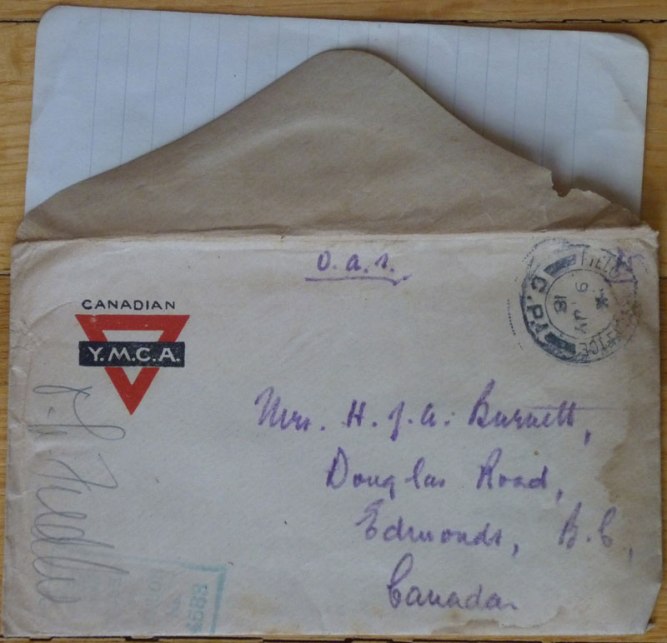 O.a.s.
CANADIAN
Y.M.C.A.
FIELD
OFFICE
C.P.1
9 JY
18
Mrs. H. J. A. Burnett,
Douglas Road,
Edmonds, B.C,
Canada